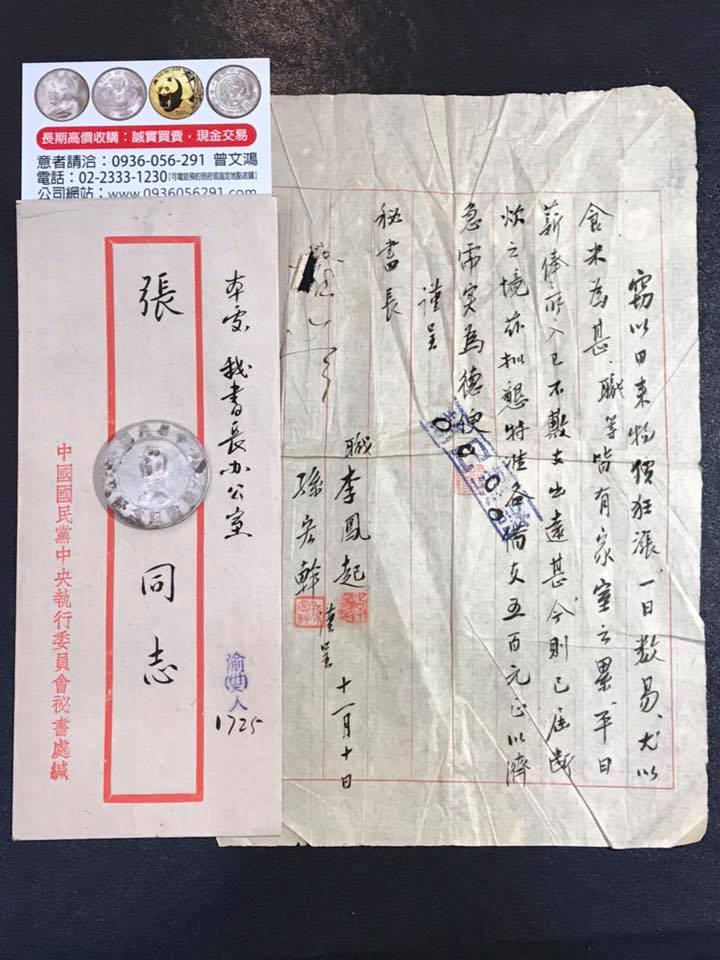 長期高價收購：誠實買賣，現金交易
意者請洽：0936-056-291 曾文鴻
電話：02-2333-1230【可電話預約到府或指定地點收購】
公司網站：www.0936056291.com
本處 秘書長办公室
張 同志
渝(廿)人
1725
中國國民黨中央執行委員會祕書處緘
竊以日来物價狂漲、一日数易、尤以
食米為甚、職等皆有家室之累、平日
薪俸所入已不敷支出遠甚、今則已屆断
炊之境茲擬懇特准各借支五百元正以濟
急需实為德便
謹呈
秘書長
職 李鳳起
孫宏幹 謹呈 十一月十日